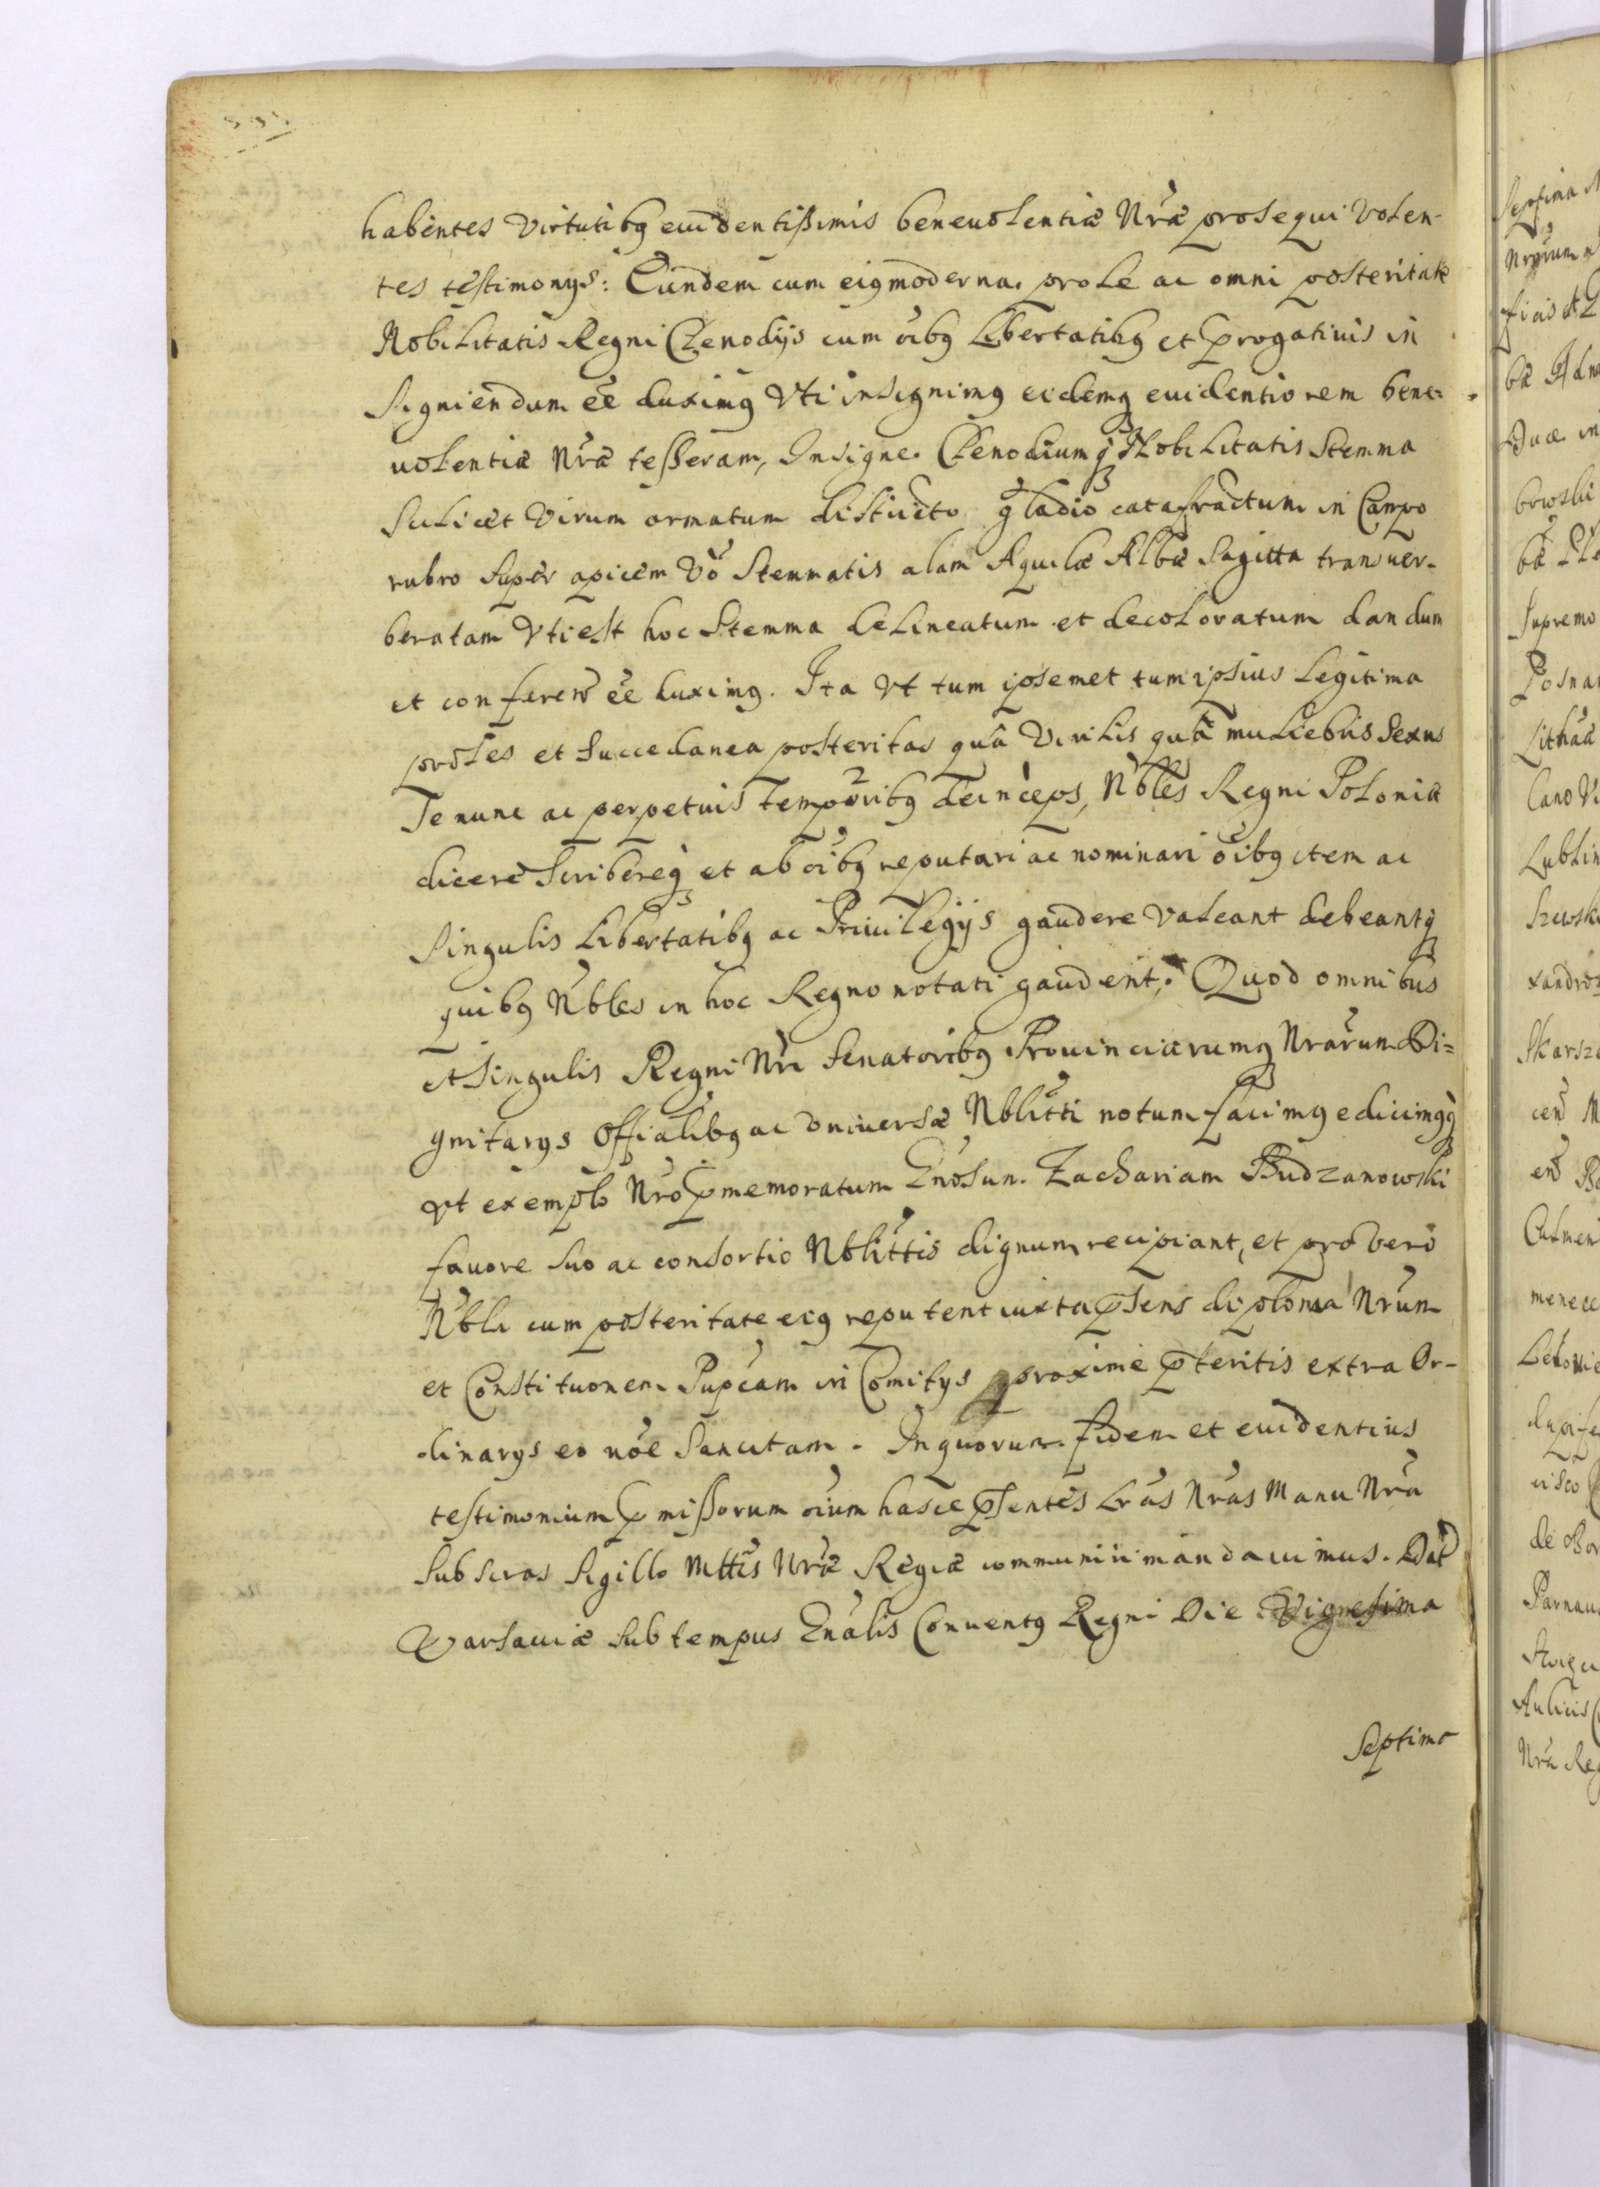 habentes virtutibq euidentissimis beneuolentiæ Nræ prosequi volen-
tes testimonys: Eundem cum eiq moderna prole ac omni posteritate
Nobilitatis Regni Clenodijs cum oibq Libertatibq et prrogatiuis in
signiendum eē duximq Vti insignimq eidemq euidentiorem bene-
uolentiæ Nræ tesseram, Insigne Clenodiumq Nobilitatis Stemma
Scilicet Virum armatum districto gladio catafractum in Campo
rubro Super apicem Vō Stemmatis alam Aquilæ Albæ Sagitta transuer-
beratam Vti est hoc Stemma delineatum et decoloratum dandum
et conferen eē duximq. Ita Vt tum ipsemet tum ipsius Legitima
proles et Succedanea posteritas quā Virilis quā muliebris Sexus
Ie nunc ac perpetuis temporibq deinceps, Nbles Regni Poloniæ
dicere Scribereq et ab oibq reputari ac nominari oibq item ac
Singulis Libertatibq ac Priuilegijs gaudere Valeant debeantq
quibq Nbles in hoc Regno notati gaudent. Quod omnibus
et Singulis Regni Nri Senatoribq Prouinciarumq Nrarum Di=
gnitarys Officialibq ac Vniversæ Nblitti notum facimq edicimqq
Vt exemplo Nro pmemoratum Gnosum Zachariam Budzanowski
fauore Suo ac consortio Nblittis dignum recipiant, et pro Vero
Nbli cum posteritate eiq reputent iuxta psens diploma Nrum
et Constituonem Supeam in Comitys proxime pteritis extra Or-
dinarys eo noe Sancitam. In quorum fidem et euidentius
testimonium pmissorum oium hasce psentes Lras Nras Manu Nra
Subscras Sigillo Mttis Nræ Regiæ communiri mandauimus. Dat
Varsauiæ Sub tempus Gnalis Conuentq Regni Die Vigesima
Septima